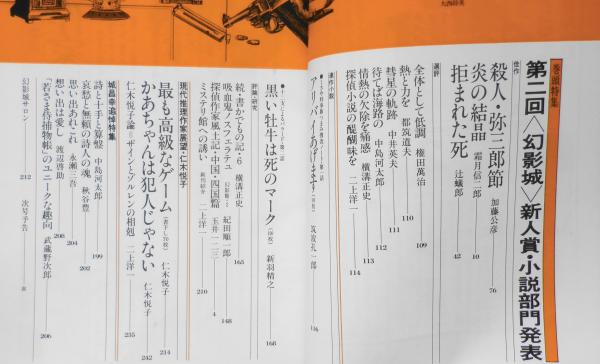 大西将美
巻頭特集
第二回〈幻影城〉新人賞・小説部門発表
佳作
殺人・弥三郎節 加藤公彦 76
炎の結晶 霜月信二郎 10
拒まれた死 辻蟻郎 42
選評
全体として低調 権田萬治 109
熱と力を 都筑道夫 110
彗星の軌跡 中井英夫 111
待てば海路の 中島河太郎 112
情熱の欠除を痛感 横溝正史 113
探偵小説の醍醐味を 二上洋一 114
連作小説
アリバイあげます 筑波孔一郎 116
黒い牡牛は死のマーク 新羽精之 168
評論・研究
続・書かでもの記・6 横溝正史 165
吸血鬼ノスフェラテュ 紀田順一郎 148
探偵作家風土記・中国・四国篇 玉井一二三 4
ミステリ館への誘い 新刊紹介 二上洋一 210
現代推理作家展望・仁木悦子
最も高級なゲーム 仁木悦子 214
かあちゃんは犯人じゃない 仁木悦子 242
仁木悦子論=ザインとゾルレンの相剋 二上洋一 235
城昌幸追悼特集
詩と十手と算盤 中島河太郎 199
哀愁と無頼の詩人の魂 秋谷豊 202
思い出あれこれ 永瀬三吾 204
想い出は愛し 渡辺啓助 208
「若さま侍捕物帳」のユニークな趣向 武蔵野次郎 206
幻影城サロン 212
次号予告